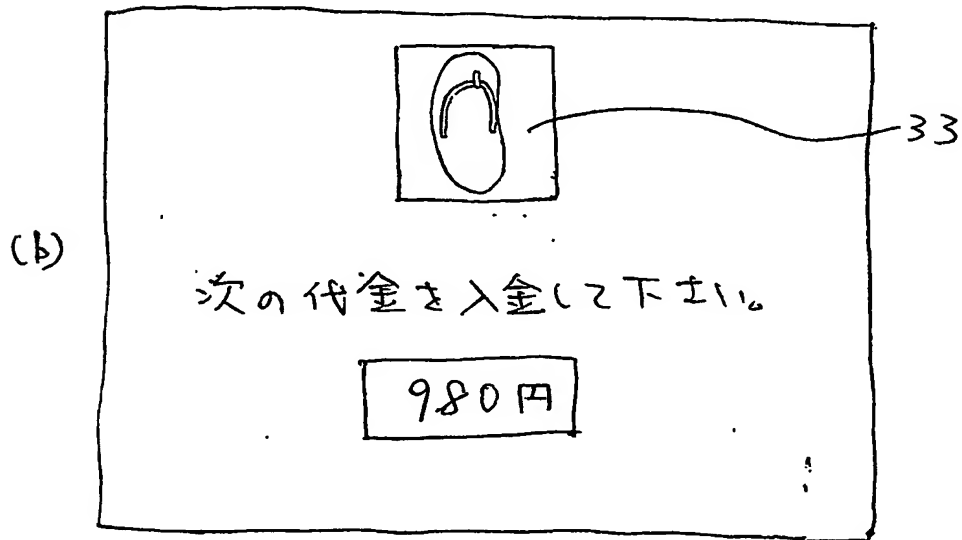 33
(b)
次の代金を入金して下さい。
980円